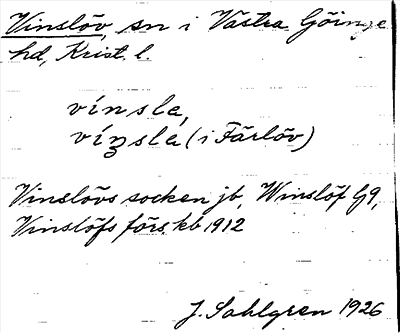 Vinslöv, sn i Västra Göinge
hd, Krist. l.
vínsla,
víṇsla (i Färlöv)
Vinslövs socken jb, Winslöf G9,
Vinslöfs förs. kb 1912
J. Sahlgren 1926